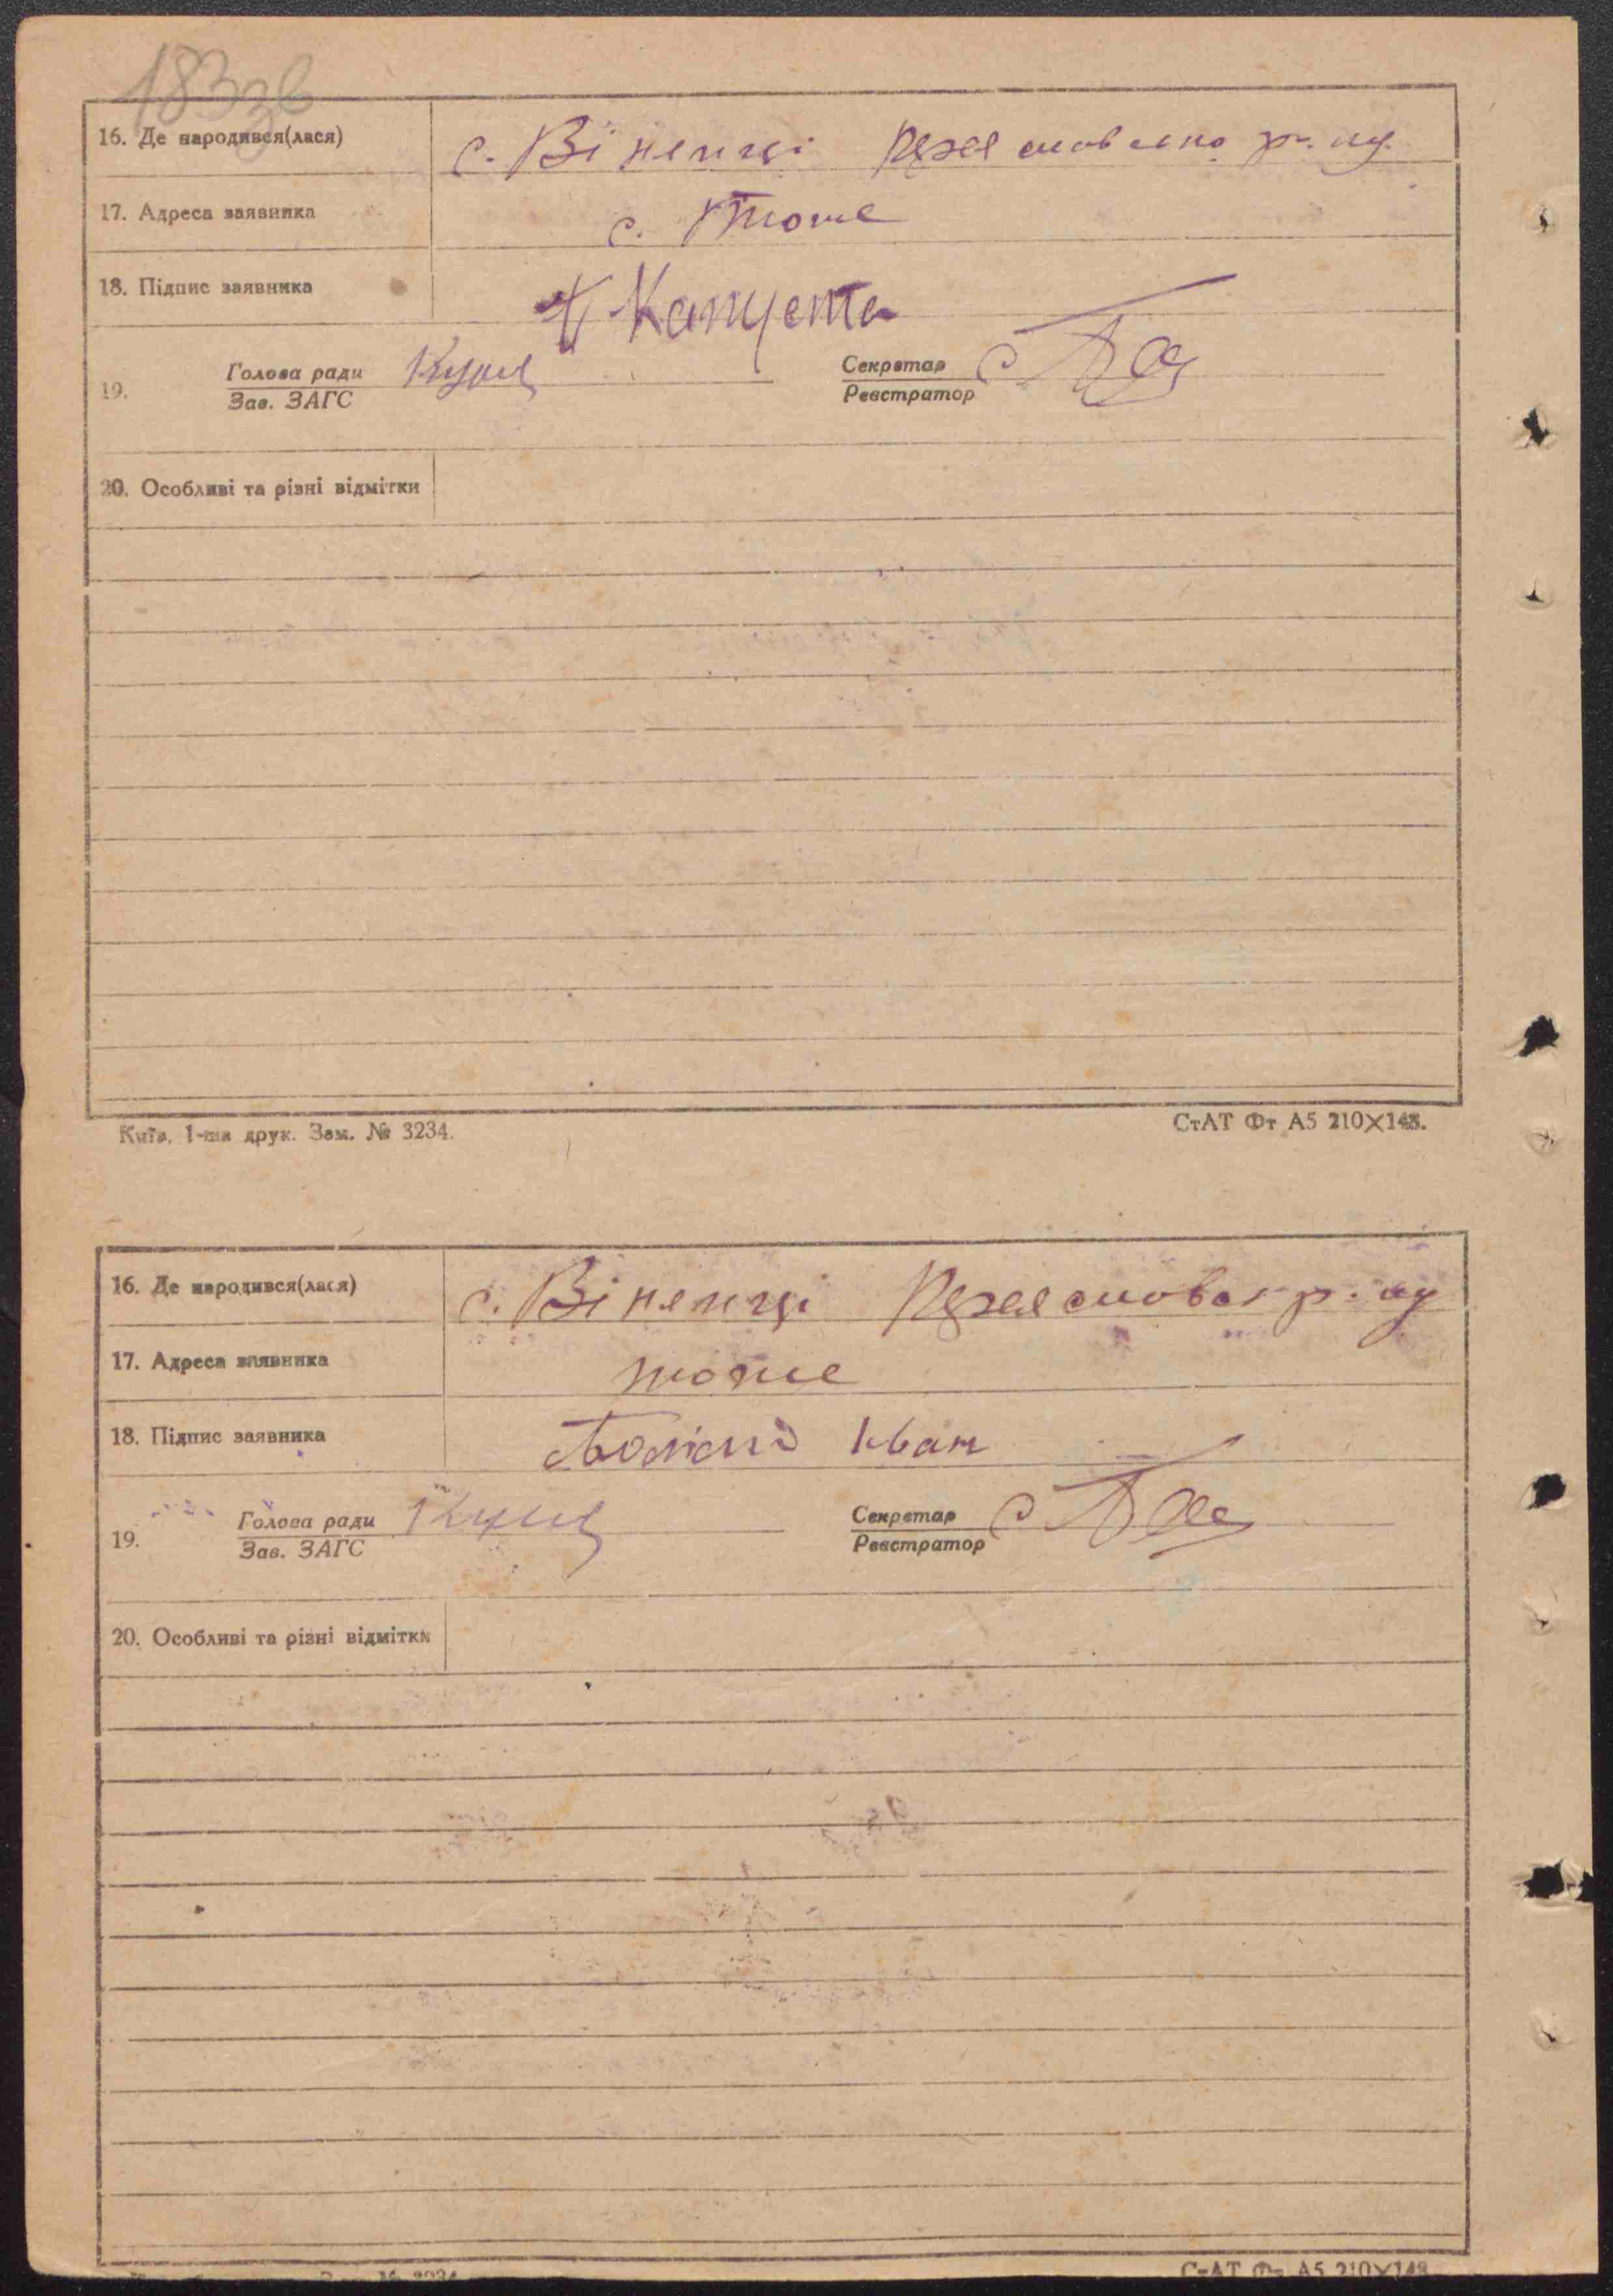 183зв
16. Де народився(лася) с. Віненці Переяславсько р-ну
17. Адреса заявника с. тоже
18. Підпис заявника Капуста
19. Голова ради Секретар
Зав. ЗАГС Реєстратор
20. Особливі та різні відмітки
Київ, 1-ша друк. Зам. № 3234. СтАТ Фт А5 210×148.
16. Де народився(лася) с. Віненці Переяславск р-ну
17. Адреса заявника тоже
18. Підпис заявника Іван
19. Голова ради Секретар
Зав. ЗАГС Реєстратор
20. Особливі та різні відмітки
СтАТ Фт А5 210×148.